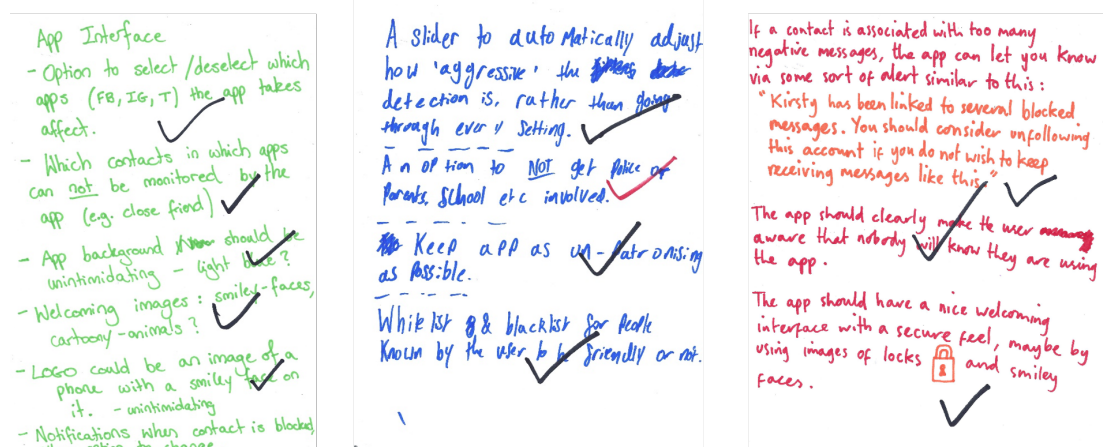 App Interface
- Option to select/deselect which
apps (FB, IG, T) the app takes
affect.
- Which contacts in which apps
can not be monitored by the
app (e.g. close friend)
- App background should be
unintimidating - light blue?
- Welcoming images: smiley-faces,
cartoony-animals?
- LOGO could be an image of a
phone with a smiley face on
it. - unintimidating
- Notifications when contact is blocked,
A slider to automatically adjust
how 'aggressive' the
detection is, rather than going
through every setting.
An option to NOT get Police or
Parents, School etc involved.
Keep app as un-patronising
as possible.
White list & blacklist for people
known by the user to be friendly or not.
If a contact is associated with too many
negative messages, the app can let you know
via some sort of alert similar to this:
"Kirsty has been linked to several blocked
messages. You should consider unfollowing
this account if you do not wish to keep
receiving messages like this."
The app should clearly make the user
aware that nobody will know they are using
the app.
The app should have a nice welcoming
interface with a secure feel, maybe by
using images of locks and smiley
faces.